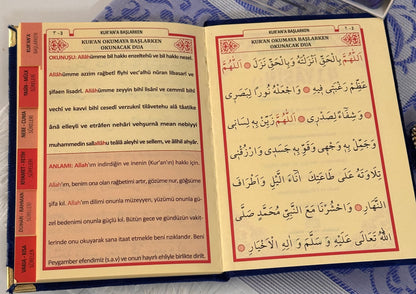 KUR'AN'A
BAŞLARKEN
YASİN - MÜLK
SÛRELERİ
NEBE - CUMA
SÛRELERİ
KIYAMET - FETİH
SÛRELERİ
DUHAN - RAHMAN
SÛRELERİ
VAKIA - KISA
SÛRELER
? - 3
KUR'AN'A BAŞLARKEN
KUR'AN OKUMAYA BAŞLARKEN
OKUNACAK DUA
OKUNUŞU: Allâhümme bil hakkı enzeltehû vé bil hakkı nesel.
Allâhümme azzim rağbetî fîhi vec'alhü nûran libasarî ve
şifaen lisadrî. Allâhümme zeyyin bihî lisânî ve cemmil bihî
vechî ve kavvi bihî cesedî verzuknî tilâvetehu alâ tâatike
ânâ elleyli ve etrâfen nehâri vehşurnâ mean nebiyyi
muhammedin sallallâhu teâlâ aleyhi ve sellem, ve âlihil ahyâr.
ANLAMI: Allah'ım indirdiğin ve inenin (Kur'an'ın) hakkı için.
Allah'ım, benim ona olan rağbetimi artır, gözüme nur, göğsüme
şifa kıl. Allah'ım dilimi onunla müzeyyen, yüzümü onunla gü-
zel bedenimi onunla güçlü kıl. Bütün gece ve gündüzün vakit-
lerinde onu okuyarak sana itaat etmekle beni rızıklandır. Beni
Peygamber efendimiz (s.a.v) ve onun hayırlı ehliyle birlikte dirilt.
KUR'AN'A BAŞLARKEN
٢ - 2
KUR'AN OKUMAYA BAŞLARKEN
OKUNACAK DUA
اَللّٰهُمَّ بِالْحَقِّ اَنْزَلْتَهُ وَبِالْحَقِّ نَزَلَ ۞ اَللّٰهُمَّ
عَظِّمْ رَغْبَتِى فِيهِ ۞ وَاجْعَلْهُ نُورًا لِبَصَرِى
۞ وَشِفَاءً لِصَدْرِى ۞ اَللّٰهُمَّ زَيِّنْ بِهِ لِسَانِى
وَجَمِّلْ بِهِ وَجْهِى وَقَوِّ بِهِ جَسَدِى وَارْزُقْنِى
تِلَاوَتَهُ عَلَى طَاعَتِكَ اٰنَاءَ الَّيْلِ وَاَطْرَافَ
النَّهَارِ ۞ وَاحْشُرْنَا مَعَ النَّبِىِّ مُحَمَّدٍ صَلَّى
اللّٰهُ تَعَالٰى عَلَيْهِ وَسَلَّمَ وَ اٰلِهِ الْاَخْيَارِ ۞